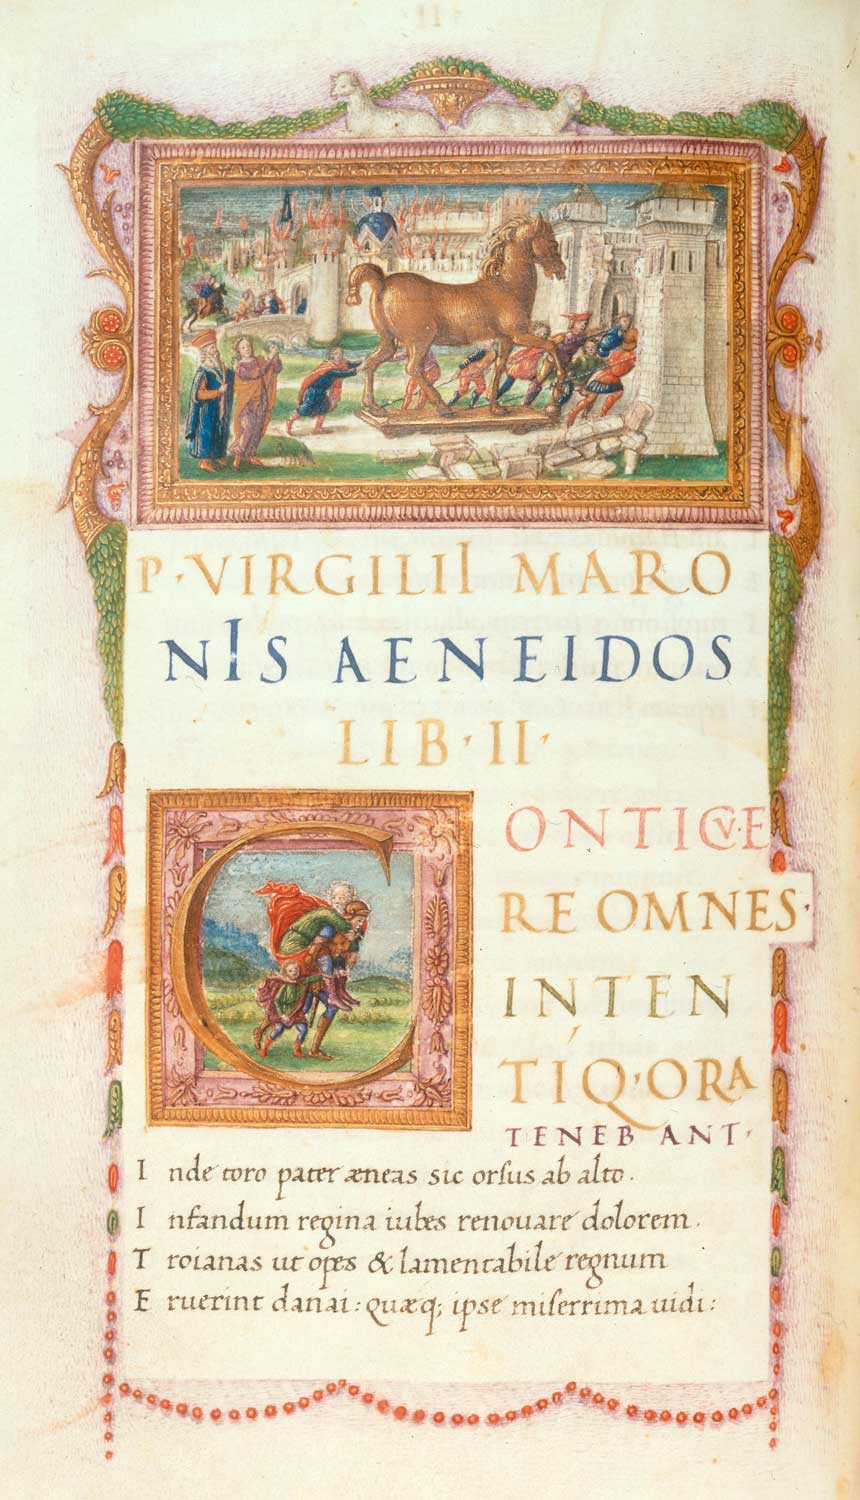 P · VIRGILII MARO
NIS AENEIDOS
LIB · II ·
CONTICVE
RE OMNES ·
INTEN
TIQ · ORA
TENEB ANT ·
I nde toro pater æneas sic orſus ab alto .
I nfandum regina iubes renouare dolorem .
T roianas ut opes & lamentabile regnum
E ruerint danai : quæq; ipse miſerrima uidi :